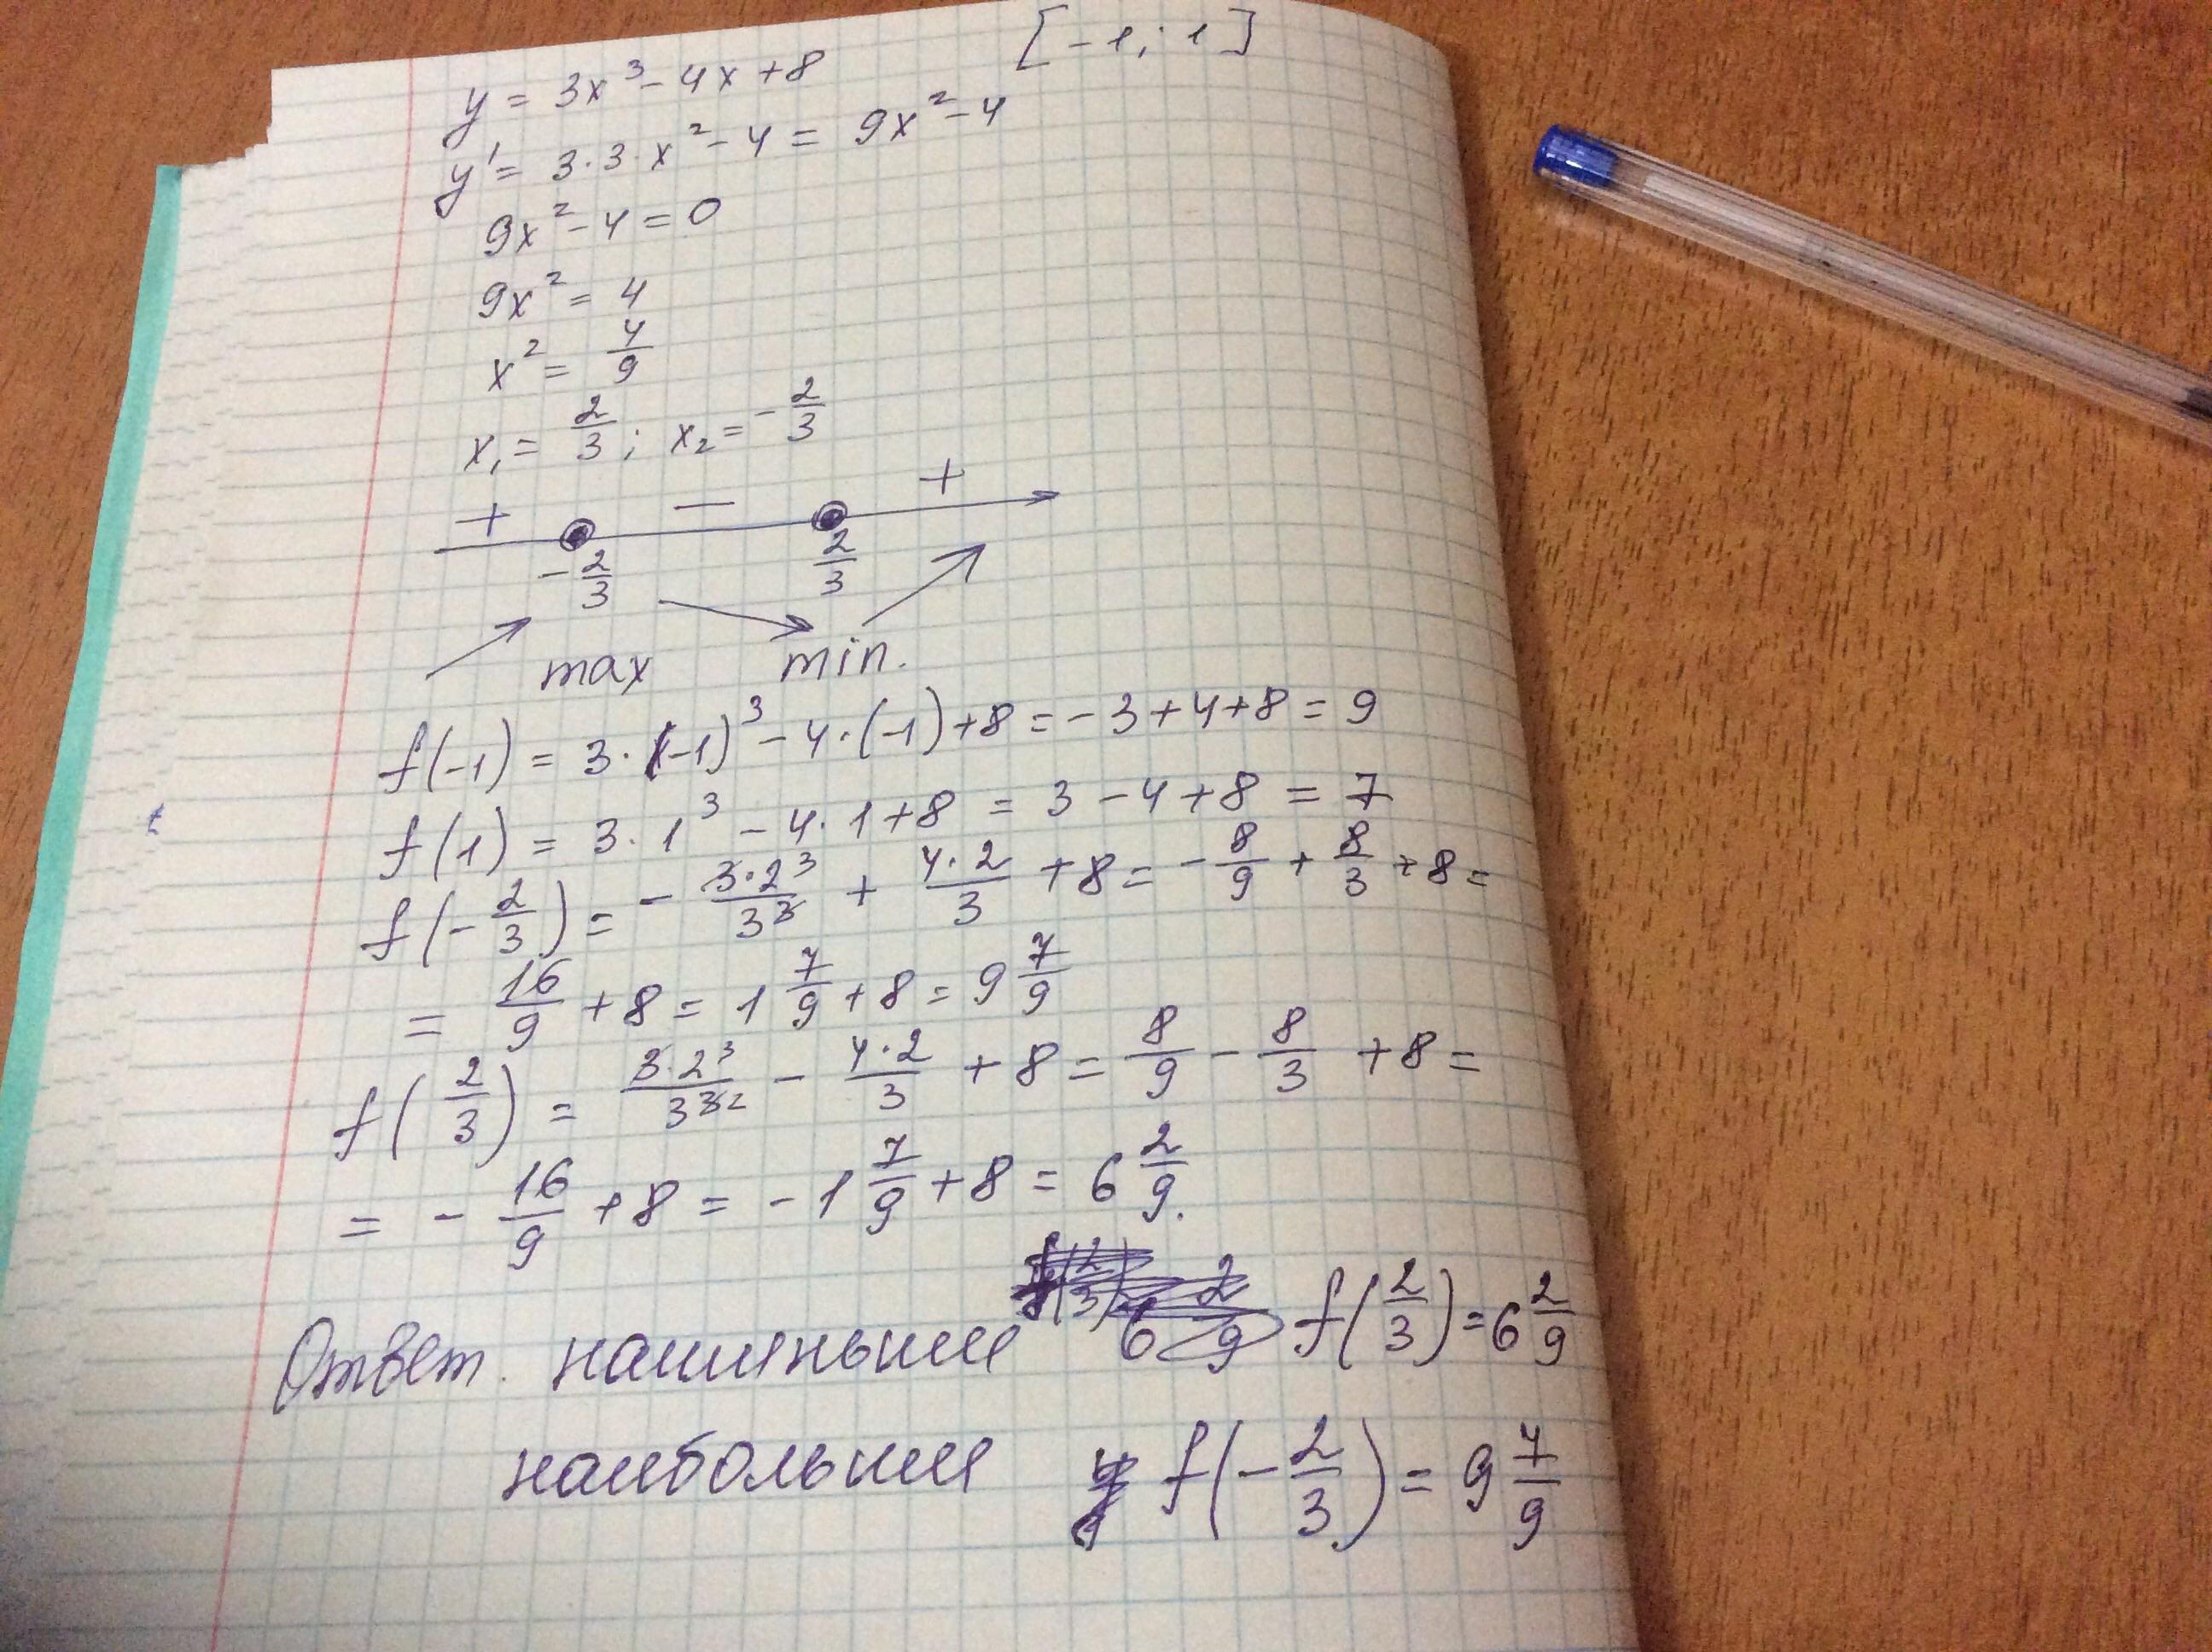 y = 3x³ - 4x + 8 [-1; 1]
y' = 3·3·x² - 4 = 9x² - 4
9x² - 4 = 0
9x² = 4
x² = 4/9
x₁ = 2/3; x₂ = -2/3
+ − +
-2/3 2/3
max min.
f(-1) = 3·(-1)³ - 4·(-1) + 8 = -3 + 4 + 8 = 9
f(1) = 3·1³ - 4·1 + 8 = 3 - 4 + 8 = 7
f(-2/3) = - 3·2³/3³ + 4·2/3 + 8 = - 8/9 + 8/3 + 8 =
= 16/9 + 8 = 1 7/9 + 8 = 9 7/9
f(2/3) = 3·2³/3³² - 4·2/3 + 8 = 8/9 - 8/3 + 8 =
= - 16/9 + 8 = -1 7/9 + 8 = 6 2/9.
Ответ. f(2/3) = 6 2/9
наибольшее f(-2/3) = 9 7/9